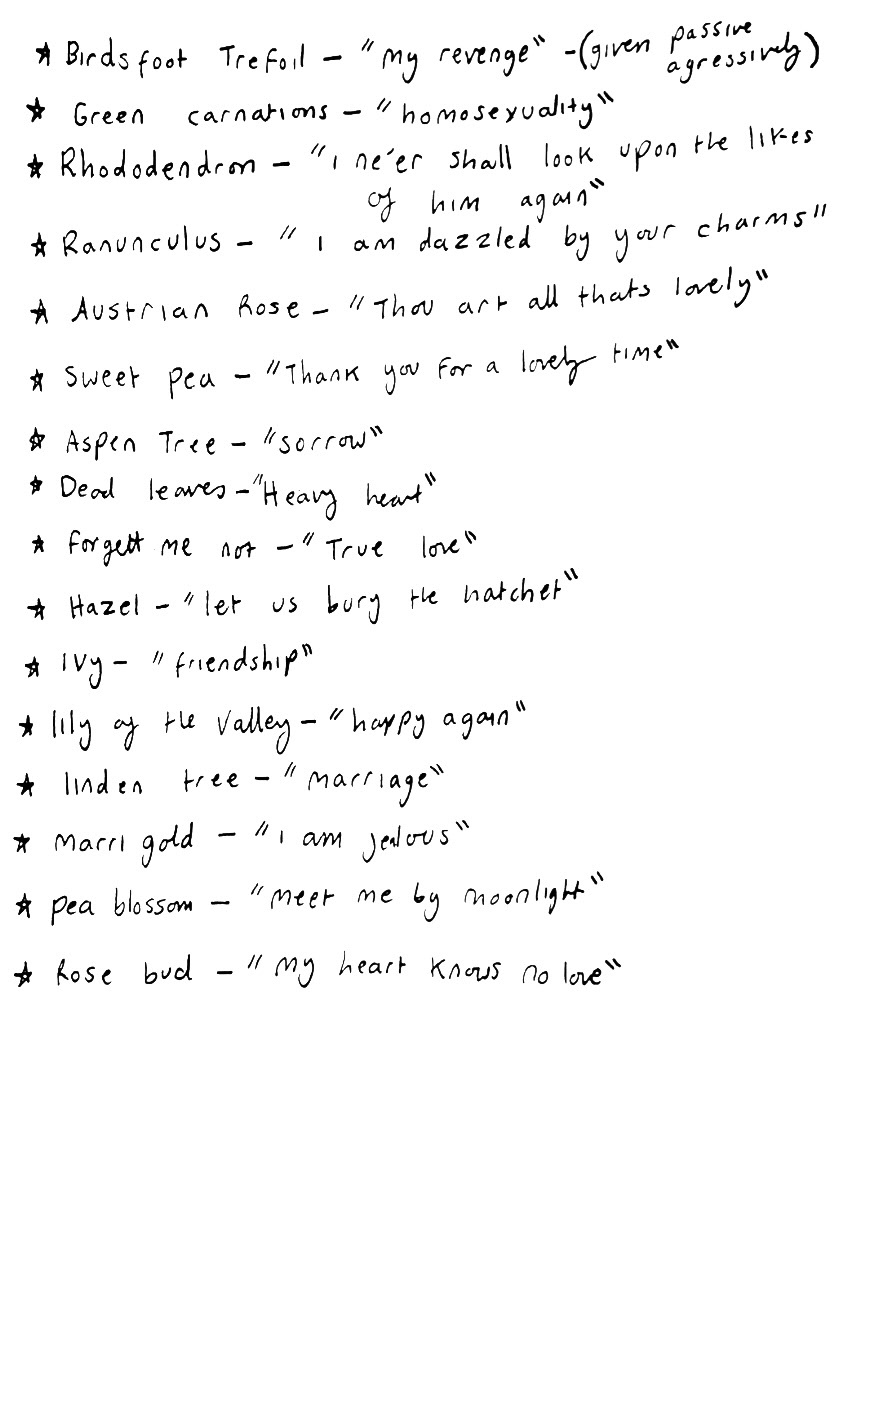 ★ Birdsfoot Trefoil – "my revenge" -(given passive agressively)
★ Green carnations – "homosexuality"
★ Rhododendron – "I ne'er shall look upon the likes
of him again"
★ Ranunculus – "I am dazzled by your charms"
★ Austrian Rose – "Thou art all thats lovely"
★ Sweet pea – "Thank you for a lovely time"
★ Aspen Tree – "sorrow"
★ Dead leaves – "Heavy heart"
★ forgett me not – "True love"
★ Hazel – "let us bury the hatchet"
★ Ivy – "friendship"
★ lily of the valley – "happy again"
★ linden tree – "marriage"
★ Marri gold – "I am jealous"
★ pea blossom – "Meet me by moonlight"
★ Rose bud – "My heart knows no love"